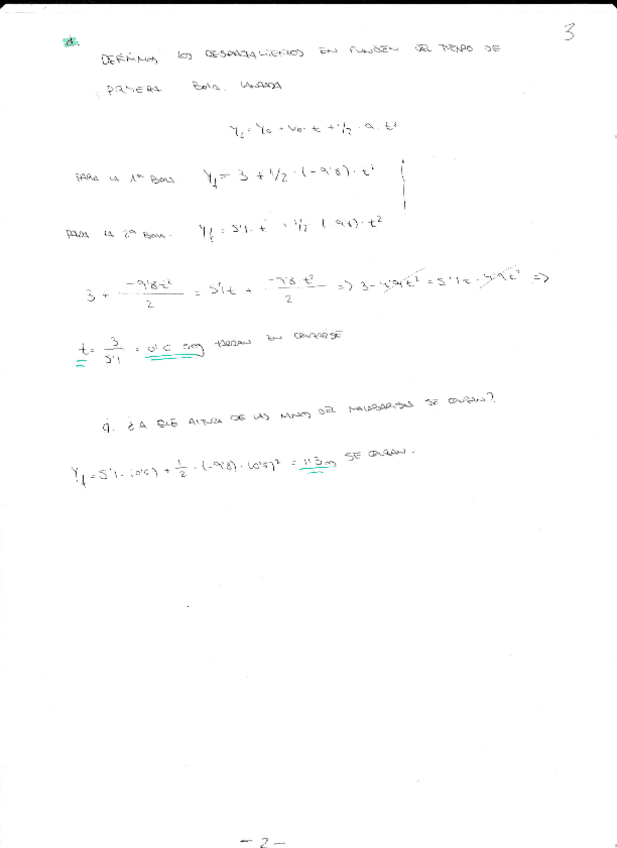 3
d.
DEFINIMOS LOS DESPLAZAMIENTOS EN FUNCIÓN DEL TIEMPO DE
PRIMERA BOLA. LANZADA
Yf = Y0 + V0·t + 1/2·a·t²
PARA LA 1ª BOLA: Yf = 3 + 1/2·(-9'8)·t²
PARA LA 2ª BOLA: Yf = 5'1·t + 1/2·(-9'8)·t²
3 + -9'8t²/2 = 5'1t + -9'8t²/2 => 3-4'9t² = 5'1t-4'9t² =>
t = 3/5'1 = 0'6 seg TARDAN EN CRUZARSE
9. ¿A QUÉ ALTURA DE LAS MANOS DEL MALABARISTA SE CRUZAN?
Yf = 5'1·(0'6) + 1/2·(-9'8)·(0'6)² = 1'3m SE CRUZAN.
- 2 -